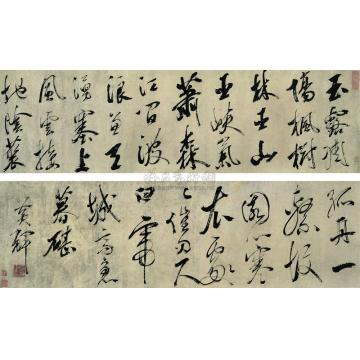 玉露凋
傷楓樹
林巫山
巫峽氣
蕭森
江間波
浪兼天
湧塞上
風雲接
地陰叢
孤舟一
繫故
園心寒
衣處
〻催刀尺
白帝
城高急
暮砧
黃輝